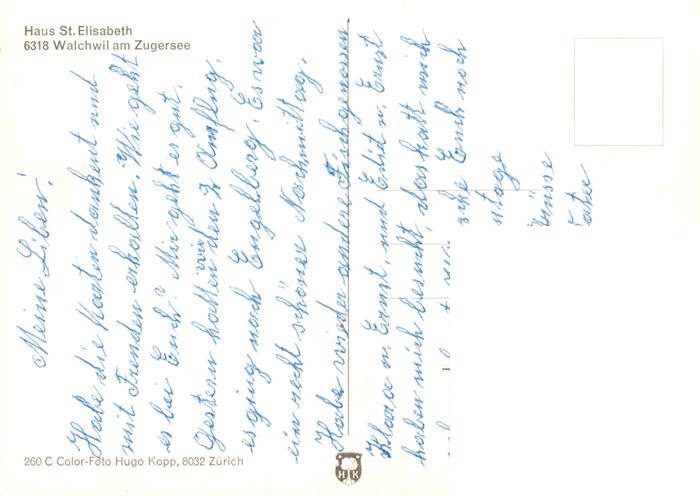 Haus St. Elisabeth
6318 Walchwil am Zugersee
Meine Liben!
Habe die Karten dankent und
mit Freuden erhalten. Wie geht
es bei Euch? Mir geht es gut.
Gestern hatten wir den 2 Ausflug,
es ging nach Engelberg. Es war
ein recht schöner Nachmittag.
Habe wieder andere Tischgenossen
Klara u. Ernst, und Edit u. Ernst
haben mich besucht, das hatt mich
Euch noch
ntage
rüsse
260 C Color-Foto Hugo Kopp, 8032 Zürich
H K